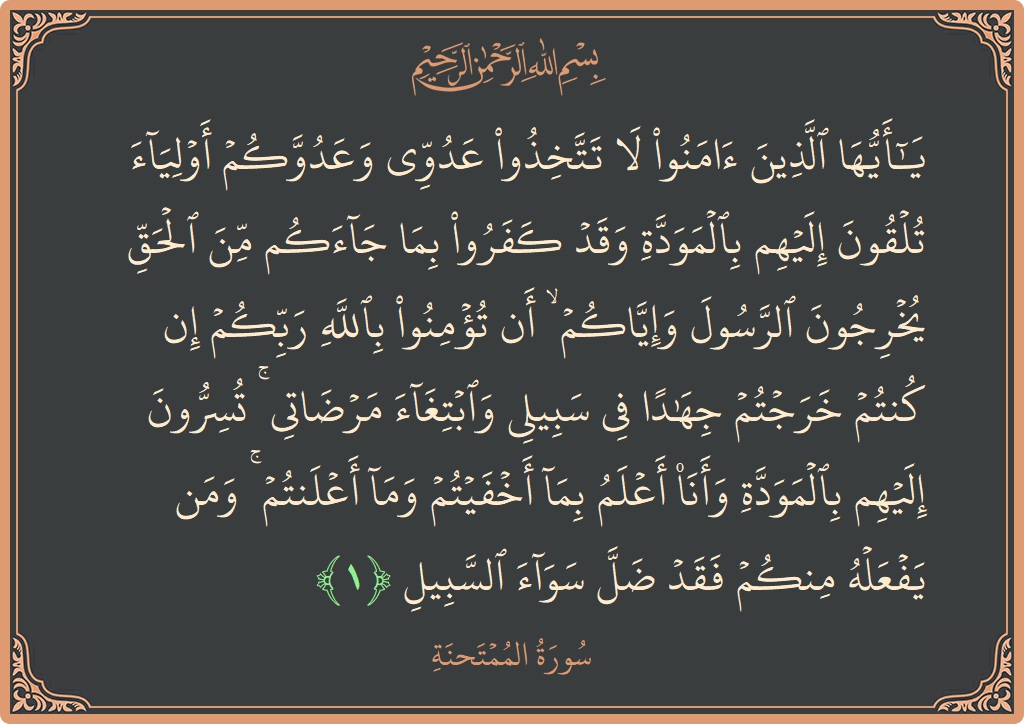 بِسْمِ اللَّهِ الرَّحْمَٰنِ الرَّحِيمِ
يَـٰٓأَيُّهَا ٱلَّذِينَ ءَامَنُوا۟ لَا تَتَّخِذُوا۟ عَدُوِّى وَعَدُوَّكُمْ أَوْلِيَآءَ
تُلْقُونَ إِلَيْهِم بِٱلْمَوَدَّةِ وَقَدْ كَفَرُوا۟ بِمَا جَآءَكُم مِّنَ ٱلْحَقِّ
يُخْرِجُونَ ٱلرَّسُولَ وَإِيَّاكُمْ ۙ أَن تُؤْمِنُوا۟ بِٱللَّهِ رَبِّكُمْ إِن
كُنتُمْ خَرَجْتُمْ جِهَـٰدًا فِى سَبِيلِى وَٱبْتِغَآءَ مَرْضَاتِى ۚ تُسِرُّونَ
إِلَيْهِم بِٱلْمَوَدَّةِ وَأَنَا۠ أَعْلَمُ بِمَآ أَخْفَيْتُمْ وَمَآ أَعْلَنتُمْ ۚ وَمَن
يَفْعَلْهُ مِنكُمْ فَقَدْ ضَلَّ سَوَآءَ ٱلسَّبِيلِ ﴿١﴾
سُورَةُ المُمْتَحنَةِ